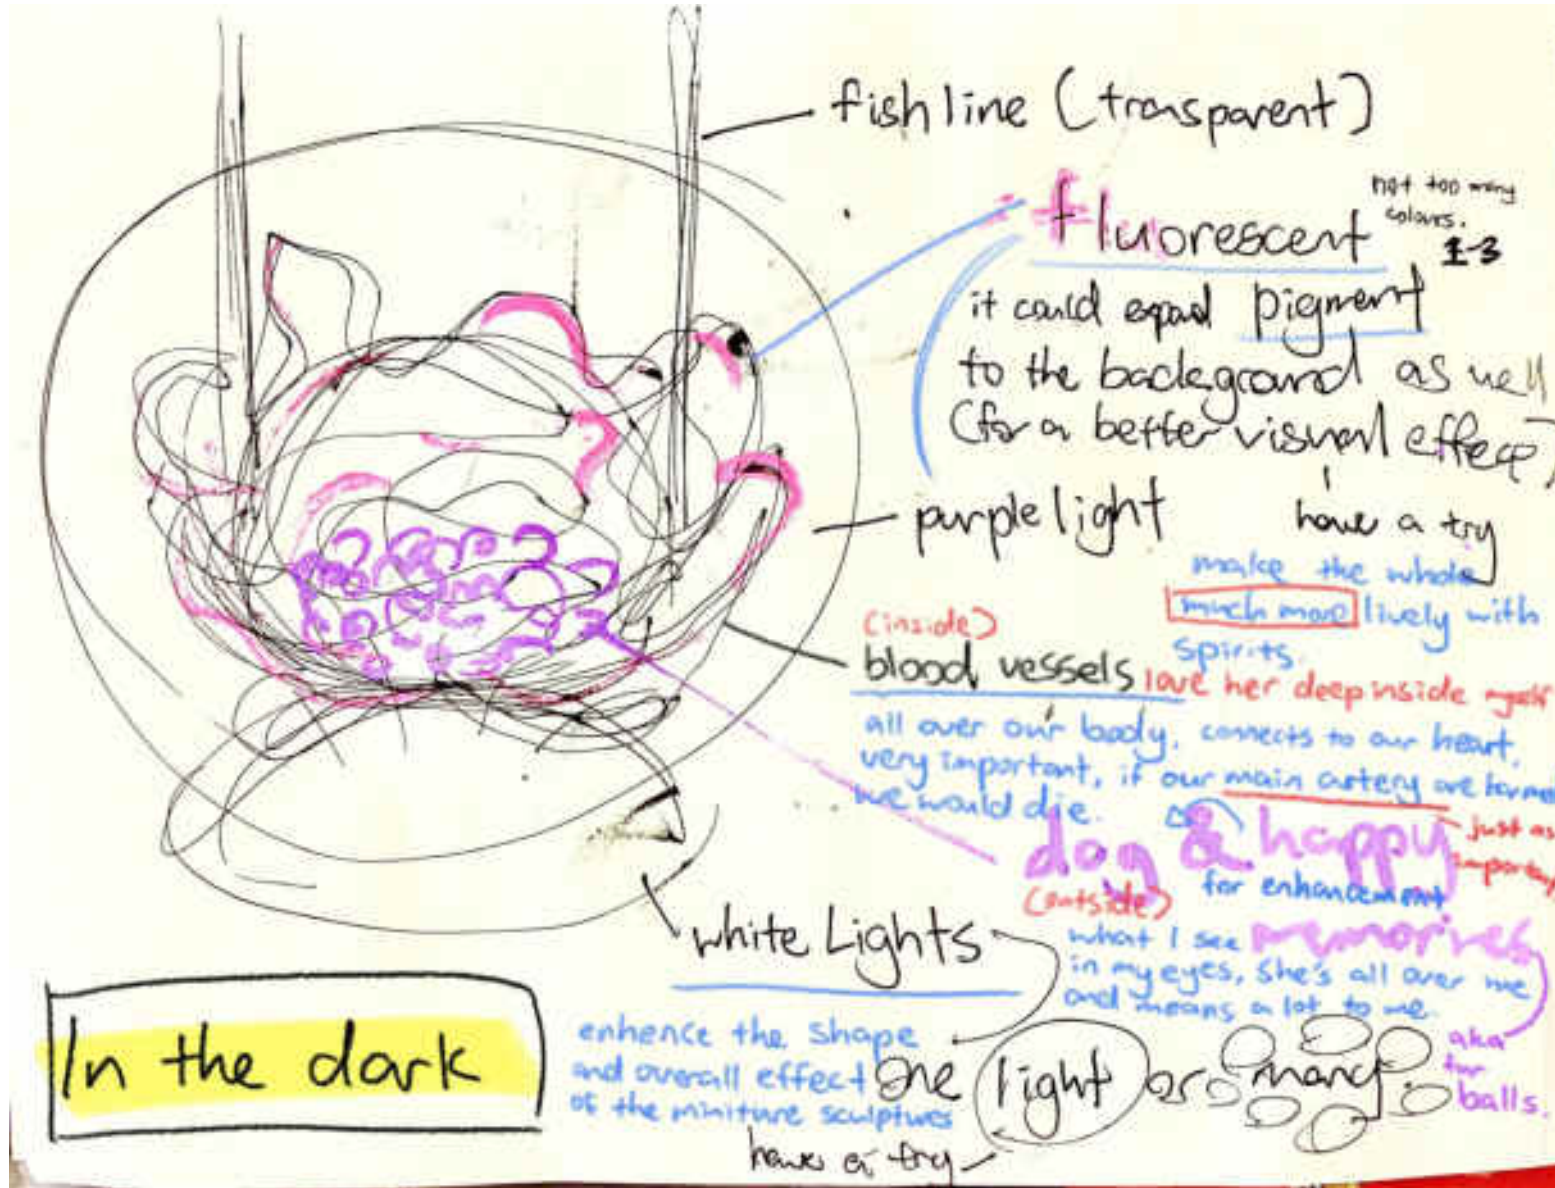 fish line (transparent)
fluorescent
not too many
colours.
1-3
it could equal pigment
to the background as well
(for a better visual effect)
have a try
purple light
make the whole
much more lively with
spirits.
(inside)
blood vessels
love her deep inside myself
all over our body, connects to our heart,
very important, if our main artery are harmed
we would die.
just as
important
dog & happy
for enhancement
(outside)
memories
what I see
in my eyes, She's all over me
and means a lot to me.
aka
fur
balls.
white Lights
enhence the shape
and overall effect
of the miniture sculptures
One light or many
have a try
In the dark